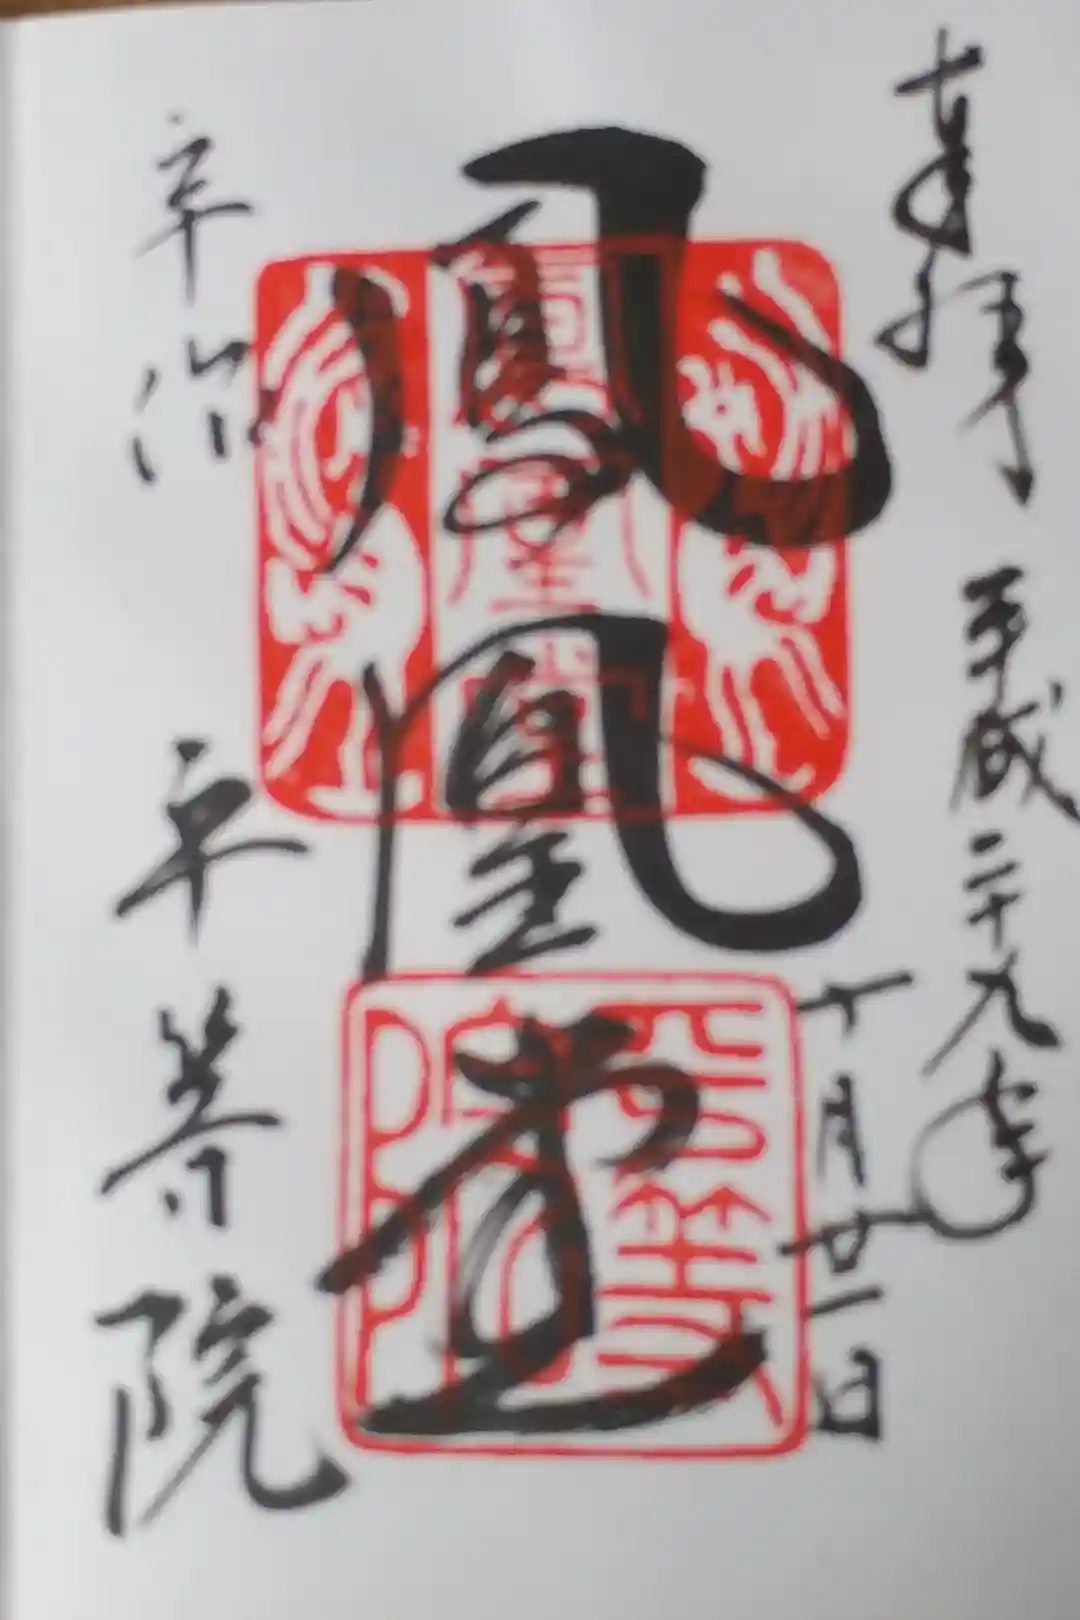 奉拝 平成二十九年
十月廿一日
鳳凰堂
宇治 平等院
鳳凰堂
平等院